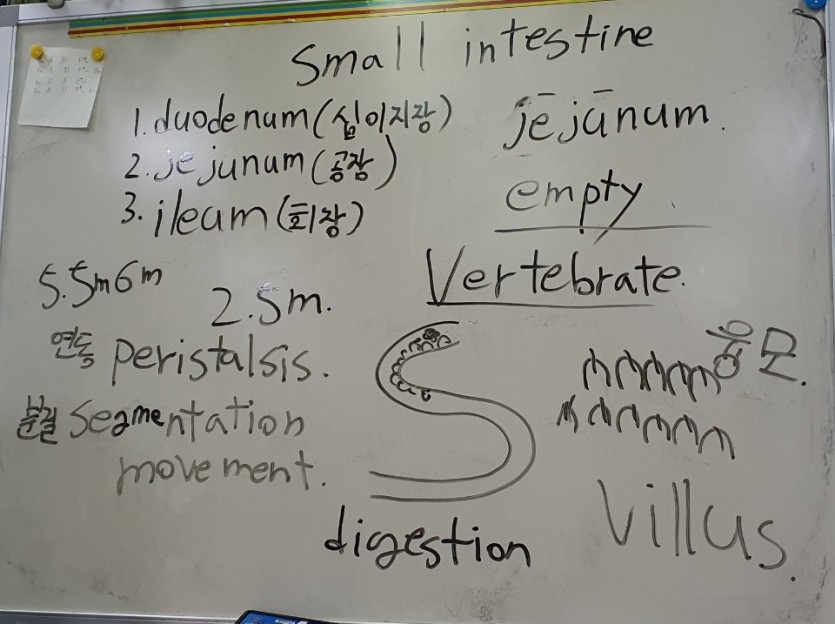 Small intestine
1. duodenum(십이지장)
2. jejunum(공장)
3. ileum(회장)
jējūnum.
empty
Vertebrate.
5.5m6m
2.5m.
연동 peristalsis.
분절 segmentation
movement.
융모.
digestion
villus.